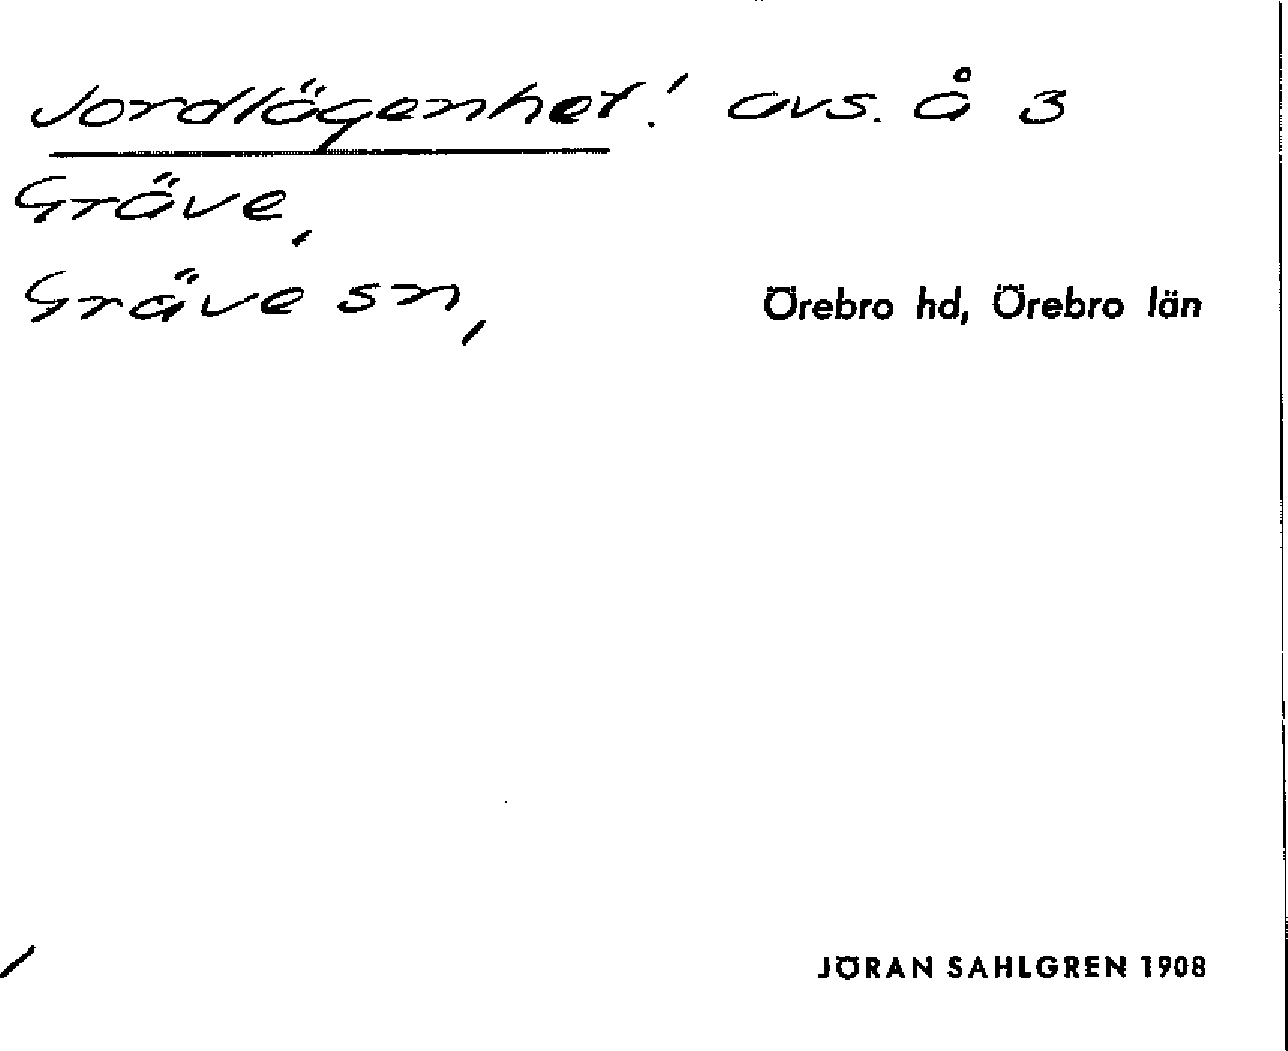 Jordlägenhet! avs. å 3
Gräve,
Gräve sn,
Örebro hd, Örebro län
JÖRAN SAHLGREN 1908